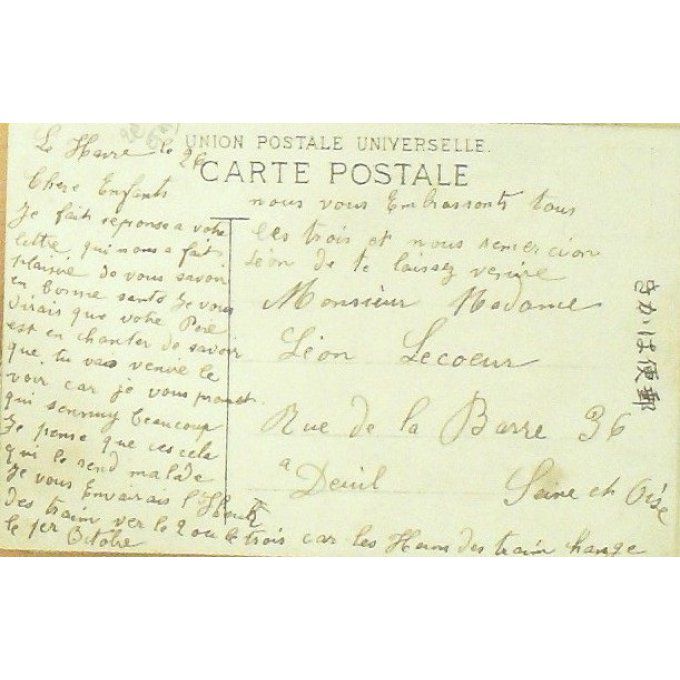 UNION POSTALE UNIVERSELLE.
CARTE POSTALE
Le Havre le 26
Chere Enfants
Je fait reponse a votre
lettre qui nous a fait
plaisir de vous savoir
en bonne santé Je vous
dirais que votre Pere
est en chanter de savoir
que tu vas venire le
voir car je vous
qui sennuy beaucoup
Je pense que ces cela
qui le rend malade
Je vous Envairais l'
des train ver le 2 ou le trois car les Heures des train change
le 1er Octobre
nous vous Embrassont tous
les trois et nous remercion
Léon de te laissez venire
Monsieur Madame
Léon Lecoeur
Rue de la Barre 36
a Deuil Seine et Oise
きかは便郵